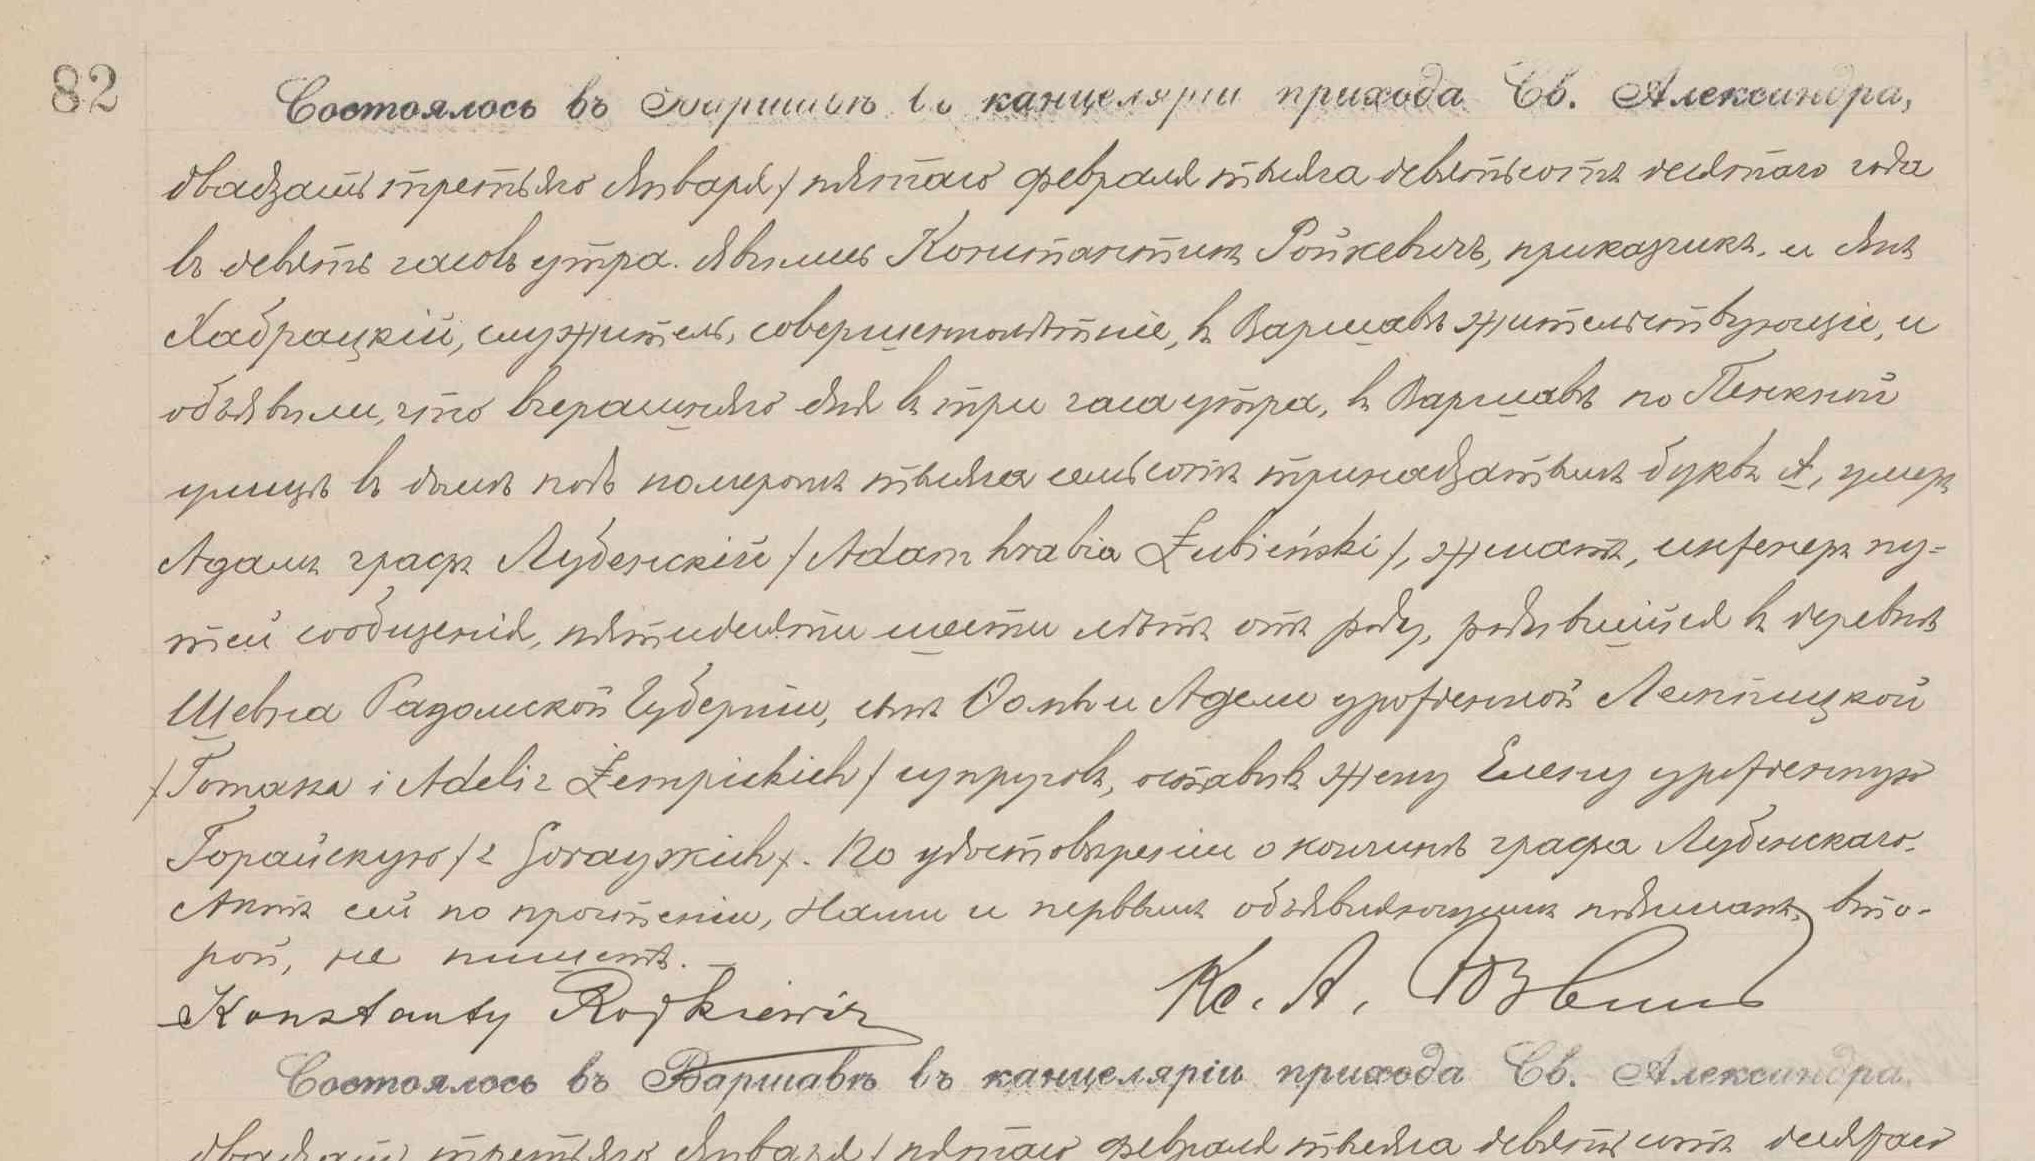 82
Состоялось въ Варшавѣ въ канцеляріи прихода Св. Александра,
двадцать третьяго Января / пятаго февраля тысяча девятьсотъ десятаго года
въ девять часовъ утра. Явились Константинъ Ройкевичъ, приказчикъ, и Янъ
Хабрацкій, служитель, совершеннолѣтніе, въ Варшавѣ жительствующіе, и
объявили, что вчерашняго дня въ три часа утра, въ Варшавѣ по Пенкной
улицѣ въ домѣ подъ номеромъ тысяча семьсотъ тринадцатымъ буквѣ А, умеръ
Адамъ графъ Лубенскій /Adam hrabia Łubieński/, женатъ, инженеръ пу-
тей сообщенія, пятидесяти шести лѣтъ отъ роду, родившійся въ деревнѣ
Шевна Радомской Губерніи, сынъ Ѳомы и Адели урожденной Лемпицкой
/Tomasza i Adeli z Łempickich/ супруговъ, оставивъ жену Елену урожденную
Горайскую /z Gorayskich/. По удостовѣреніи о кончинѣ графа Лубенскаго.
Актъ сей по прочтеніи, Нами и первымъ объявляющимъ подписанъ, вто-
рой, не пишетъ.
Konstanty Rojkiewicz Кс. А.
Состоялось въ Варшавѣ въ канцеляріи прихода Св. Александра
двадцать третьяго Января / пятаго февраля тысяча девятьсотъ десятаго